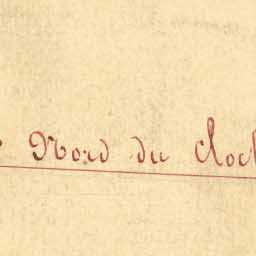 Nord du Cloch